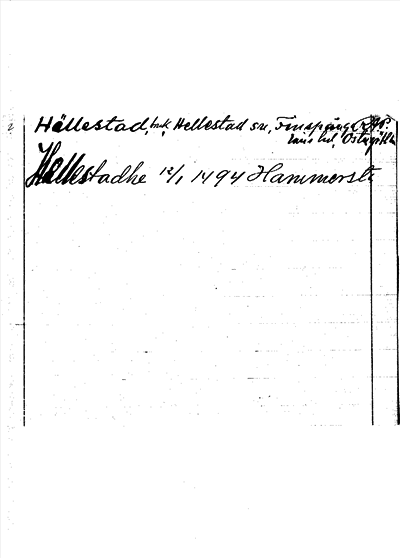 Hällestad, bruk, Hellestad sn, Finspånga
läns hd, Östergötl.
Hellestadhe 12/1 1494 Hammersta